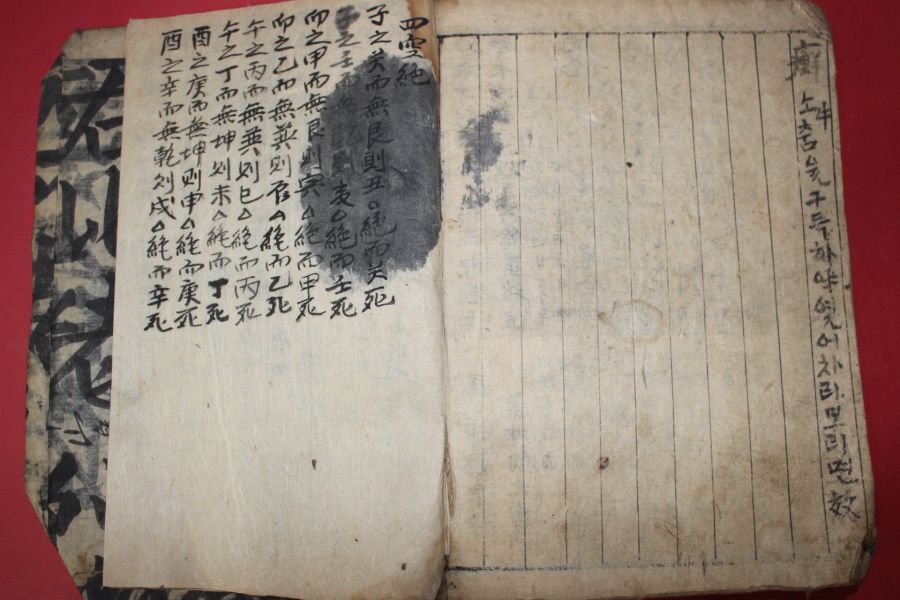 癬 소충 구등하야 엿어차라모리면效
四空絶
子之癸而無艮則丑△絶而癸死
子之壬而無則亥△絶而壬死
卯之甲而無艮則寅△絶而甲死
卯之乙而無巽則辰△絶而乙死
午之丙而無巽則巳△絶而丙死
午之丁而無坤則未△絶而丁死
酉之庚而無坤則申△絶而庚死
酉之辛而無乾則戌△絶而辛死